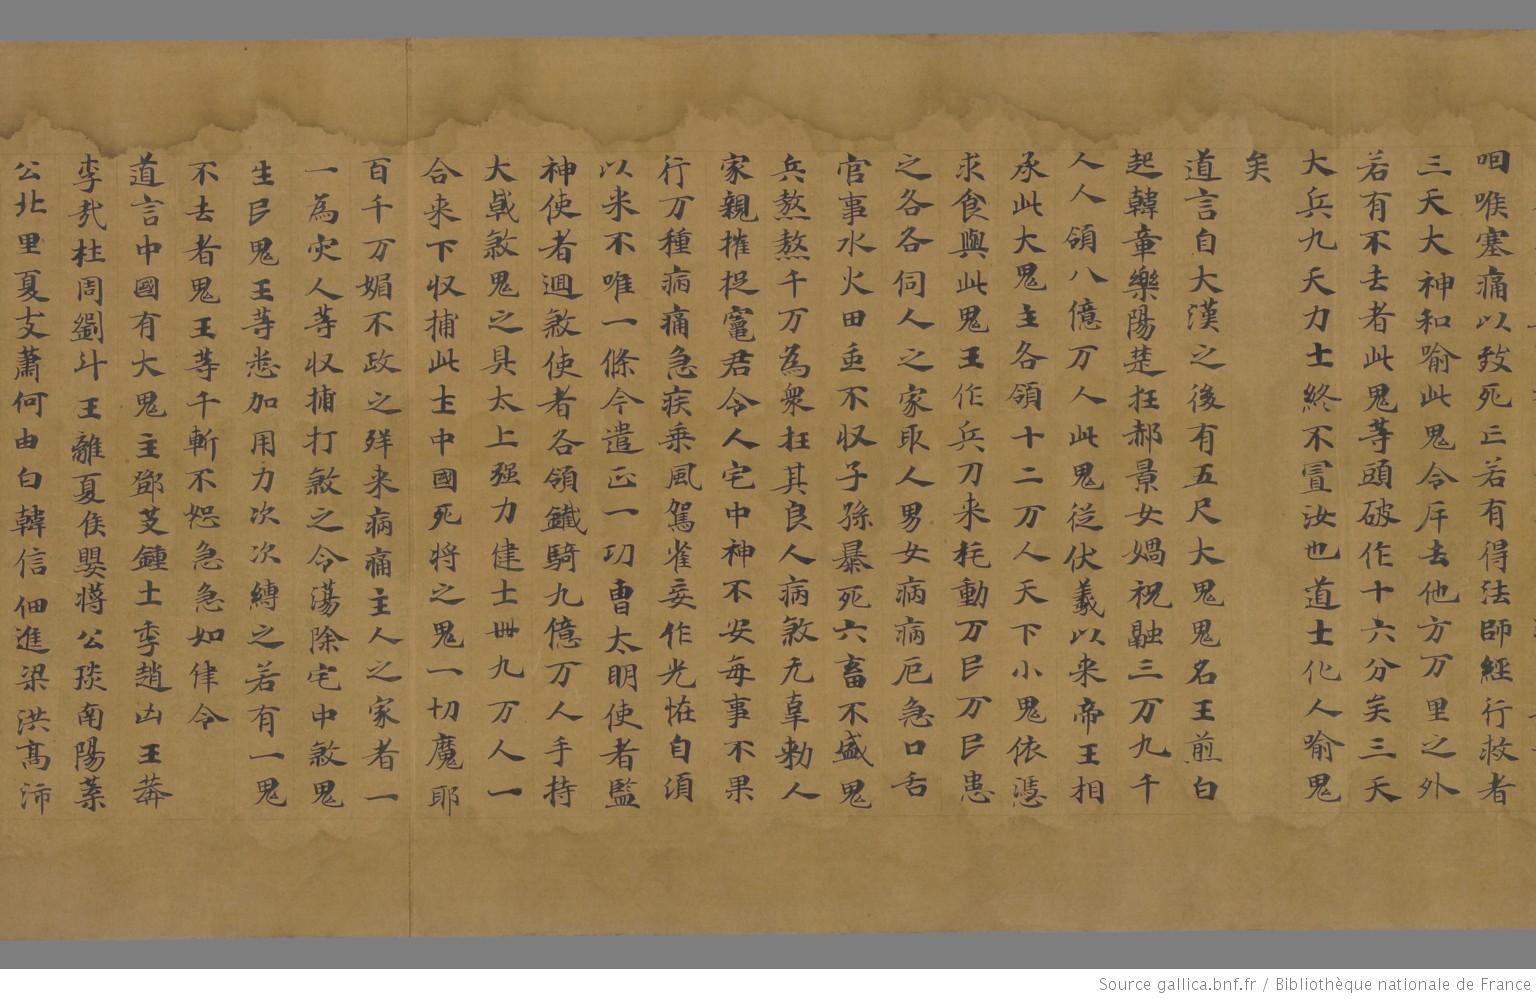 咽喉塞痛以致死亡若有得法師經行救者
三天大神和喻此鬼令斥去他方万里之外
若有不去者此鬼等頭破作十六分矣三天
大兵九天力士終不置汝也道士化人喻鬼
矣
道言自大漢之後有五尺大鬼鬼名王煎白
起韓章樂陽楚狂郝景女媧祝融三万九千
人人領八億万人此鬼從伏羲以来帝王相
承此大鬼主各領十二万人天下小鬼依憑
求食與此鬼王作兵刀来耗動万民万民患
之各各伺人之家取人男女病病厄急口舌
官事水火田蚕不収子孫暴死六畜不盛鬼
兵熬熬千万為衆狂其良人病煞无辜勑人
家親摧捉竈君令人宅中神不安每事不果
行万種病痛急疾乗風駕雀妄作光恠自須
以来不唯一條今遣正一功曹太明使者監
神使者迴煞使者各領鐵騎九億万人手持
大戟煞鬼之具太上强力健士卅九万人一
合来下収捕此世中國死将之鬼一切魔耶
百千万媚不政之祥来病痛主人之家者一
一為灾人等収捕打煞之令蕩除宅中煞鬼
生民鬼王等悉加用力次次縛之若有一鬼
不去者鬼王等千斬不恕急急如律令
道言中國有大鬼主鄧艾鍾士季趙山王莽
李敖杜周劉斗王離夏侯嬰蔣公琰南陽葉
公北里夏文蕭何由白韓信佃進梁洪髙沛